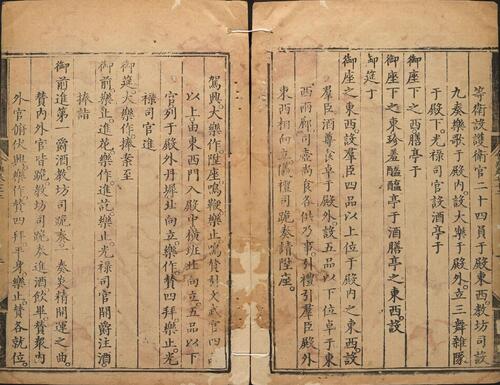 等衛設護衛官二十四員于殿東西教坊司設
九奏樂歌于殿內設大樂于殿外立三舞雜隊
于殿下。光禄司官設酒亭于
御座下之西膳亭于
御座下之東珍羞醯醢亭于酒膳亭之東西設
御筵于
御座之東西設羣臣四品以上位于殿內之東西設
羣臣酒尊食卓于殿外設五品以下位卓于東
西兩廊司壺尚食各供乃事引禮引羣臣殿外
東西相向立儀禮司跪奏請陞座。
駕興大樂作陞座鳴鞭樂止鳴贊引文武官四
以上由東西門入殿中橫班北向立五品以下
官列于殿外丹墀北向立。樂作贊四拜樂止光
禄司官進
御筵大樂作捧案至
御前樂止進花樂作進花樂止光禄司官開爵注酒
捧詣
御前進第一爵酒教坊司跪奏一奏炎精開運之曲。
贊內外官皆跪教坊司跪奏進酒飲畢贊衆內
外官俯伏興樂作贊四拜平身樂止贊各就位。